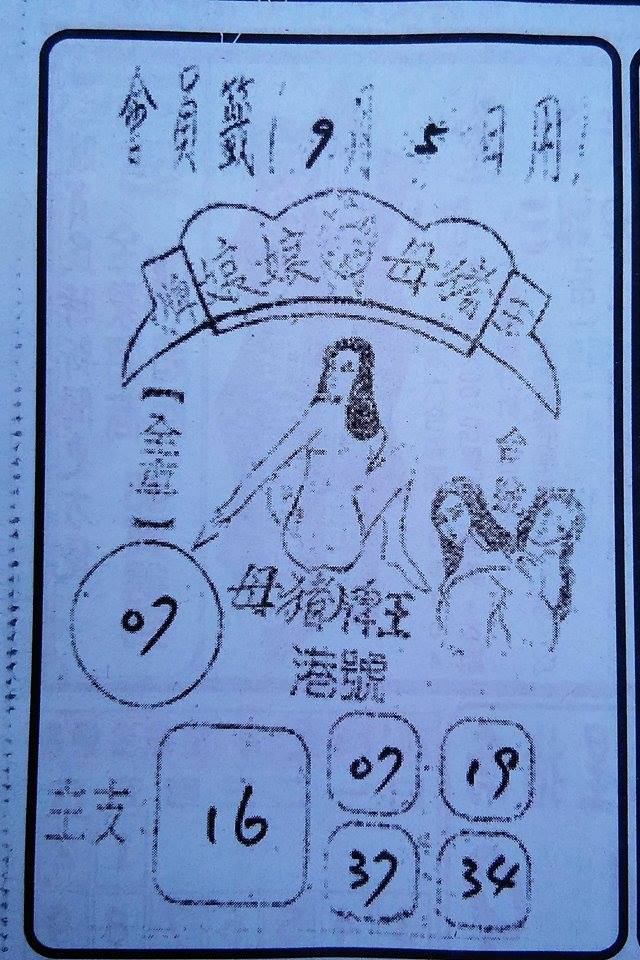 會員籤 9月 5日用
娘娘 母豬
【全車】
台號
07
母豬牌王
港號
主支 16
07 19
37 34